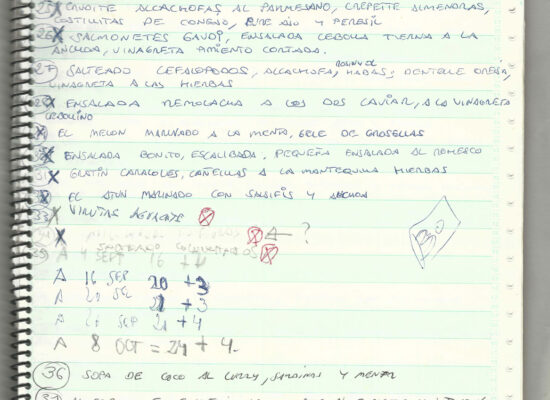 25 CRUJITE ALCACHOFAS AL PARMESANO, CREPETTE ALMENDRAS,
COSTILLITAS DE CONEJO, PURE AJO Y PEREJIL
26 SALMONETES GAUDI, ENSALADA CEBOLLA TIERNA A LA
ANCHOA, VINAGRETA PIMIENTO CORTADA.
27 SALTEADO CEFALOPODOS, ALCACHOFA, HABAS, DENTELLE OREJA,
VINAGRETA A LAS HIERBAS
28 ENSALADA REMOLACHA A LOS DOS CAVIAR, A LA VINAGRETA
CEBOLLINO
EL MELON MARINADO A LA MENTA, GELE DE GROSELLAS
ENSALADA BONITO, ESCALIBADA, PEQUEÑA ENSALADA AL ROMESCO
31 GRATIN CARACOLES, CAÑELLAS A LA MANTEQUILLA HIERBAS
EL ATUN MARINADO CON SALSIFIS Y ANCHOA
33 VIRUTAS AGUACATE
?
SALTEADO
A 9 SEPT 16 +
A 16 SEP 20 + 3
A 20 SE 21 + 3
A 26 SEP 21 + 4
A 8 OCT = 24 + 4
36 SOPA DE COCO AL CURRY, SARDINAS Y MENTA
37
BO